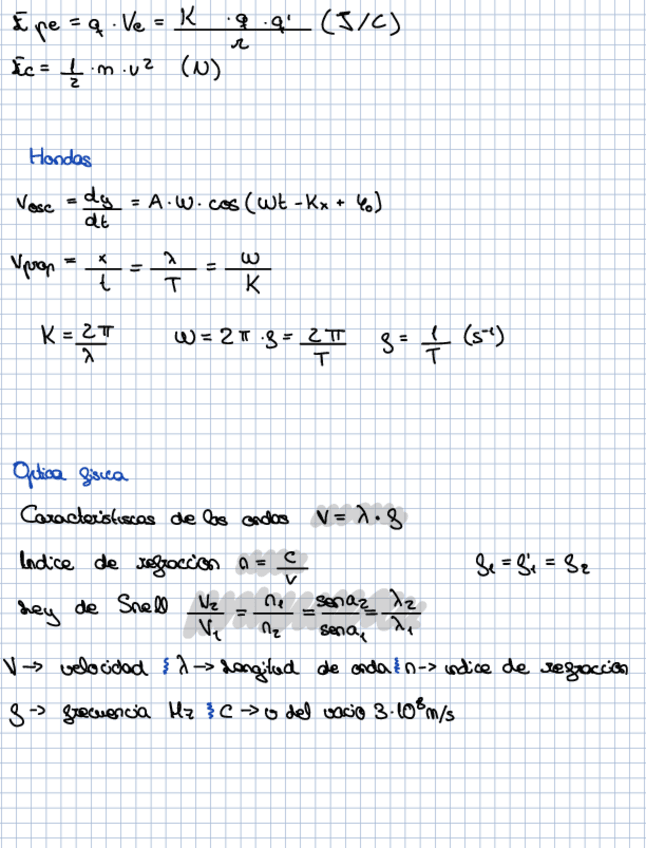 Epe = q · Ve = K · q · q' / r (J/C)
Ec = 1/2 · m · v² (N)
Hondas
Vosc = dy/dt = A · ω · cos (ωt - Kx + φ₀)
Vprop = x/t = λ/T = ω/K
K = 2π/λ ω = 2π · f = 2π/T f = 1/T (s⁻¹)
Optica fisica
Caracteristiscas de las ondas V = λ · f
Indice de refraccion n = c/v f₁ = f'₁ = f₂
Ley de Snell V₂/V₁ = n₁/n₂ = sena₂/sena₁ = λ₂/λ₁
V -> velocidad } λ -> Longitud de onda } n -> indice de refraccion
f -> frecuencia Hz } C -> v del vacio 3·10⁸ m/s